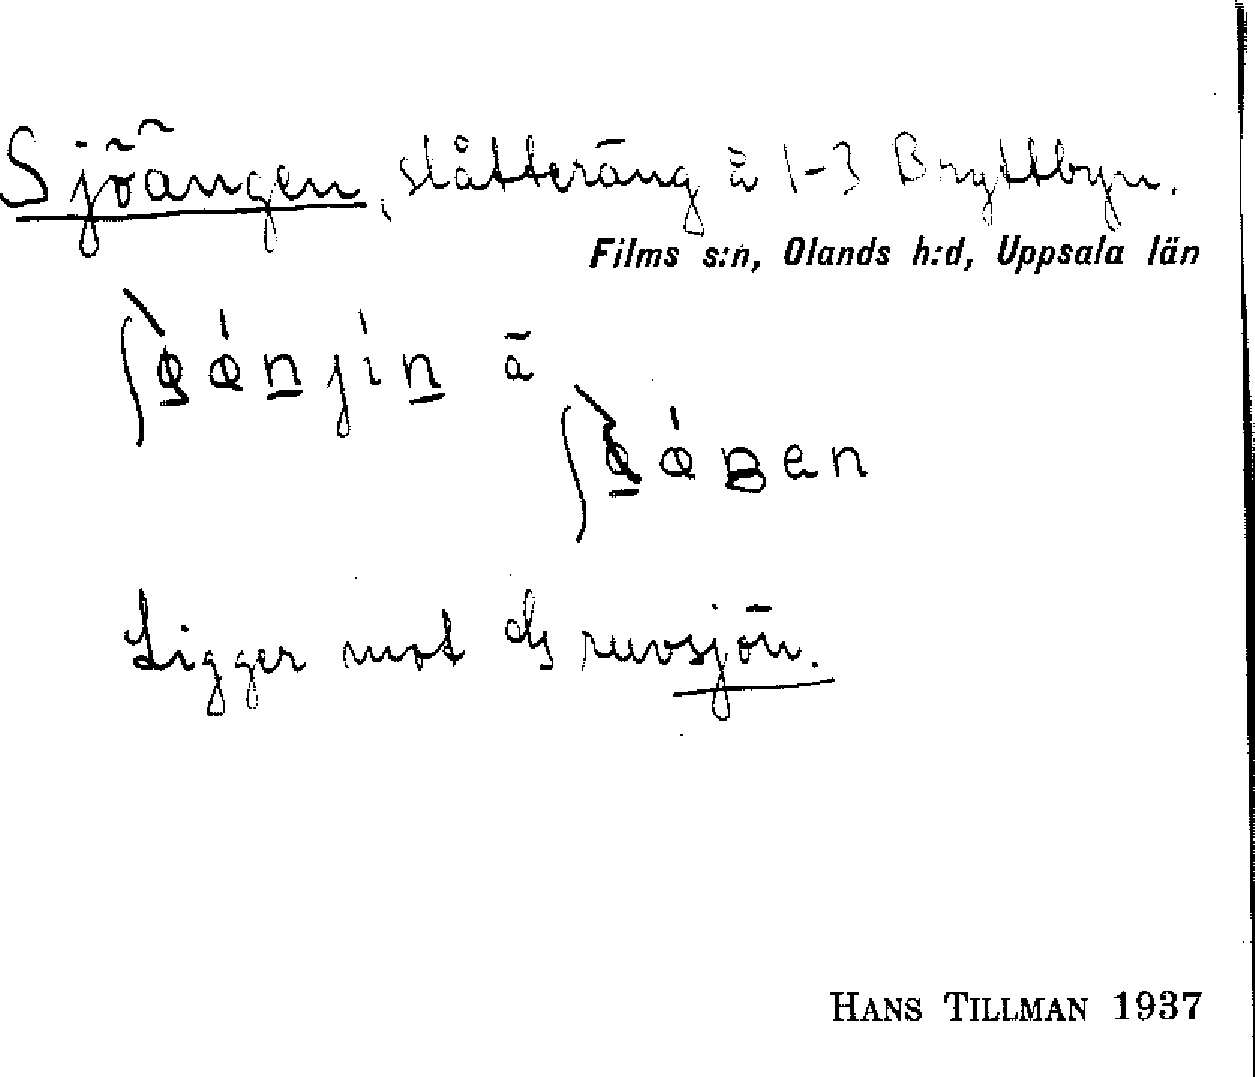 Sjöängen, slåtteräng å 1-3 Bryttbyn.
Films s:n, Olands h:d, Uppsala län
Ligger mot Gruvsjön.
HANS TILLMAN 1937